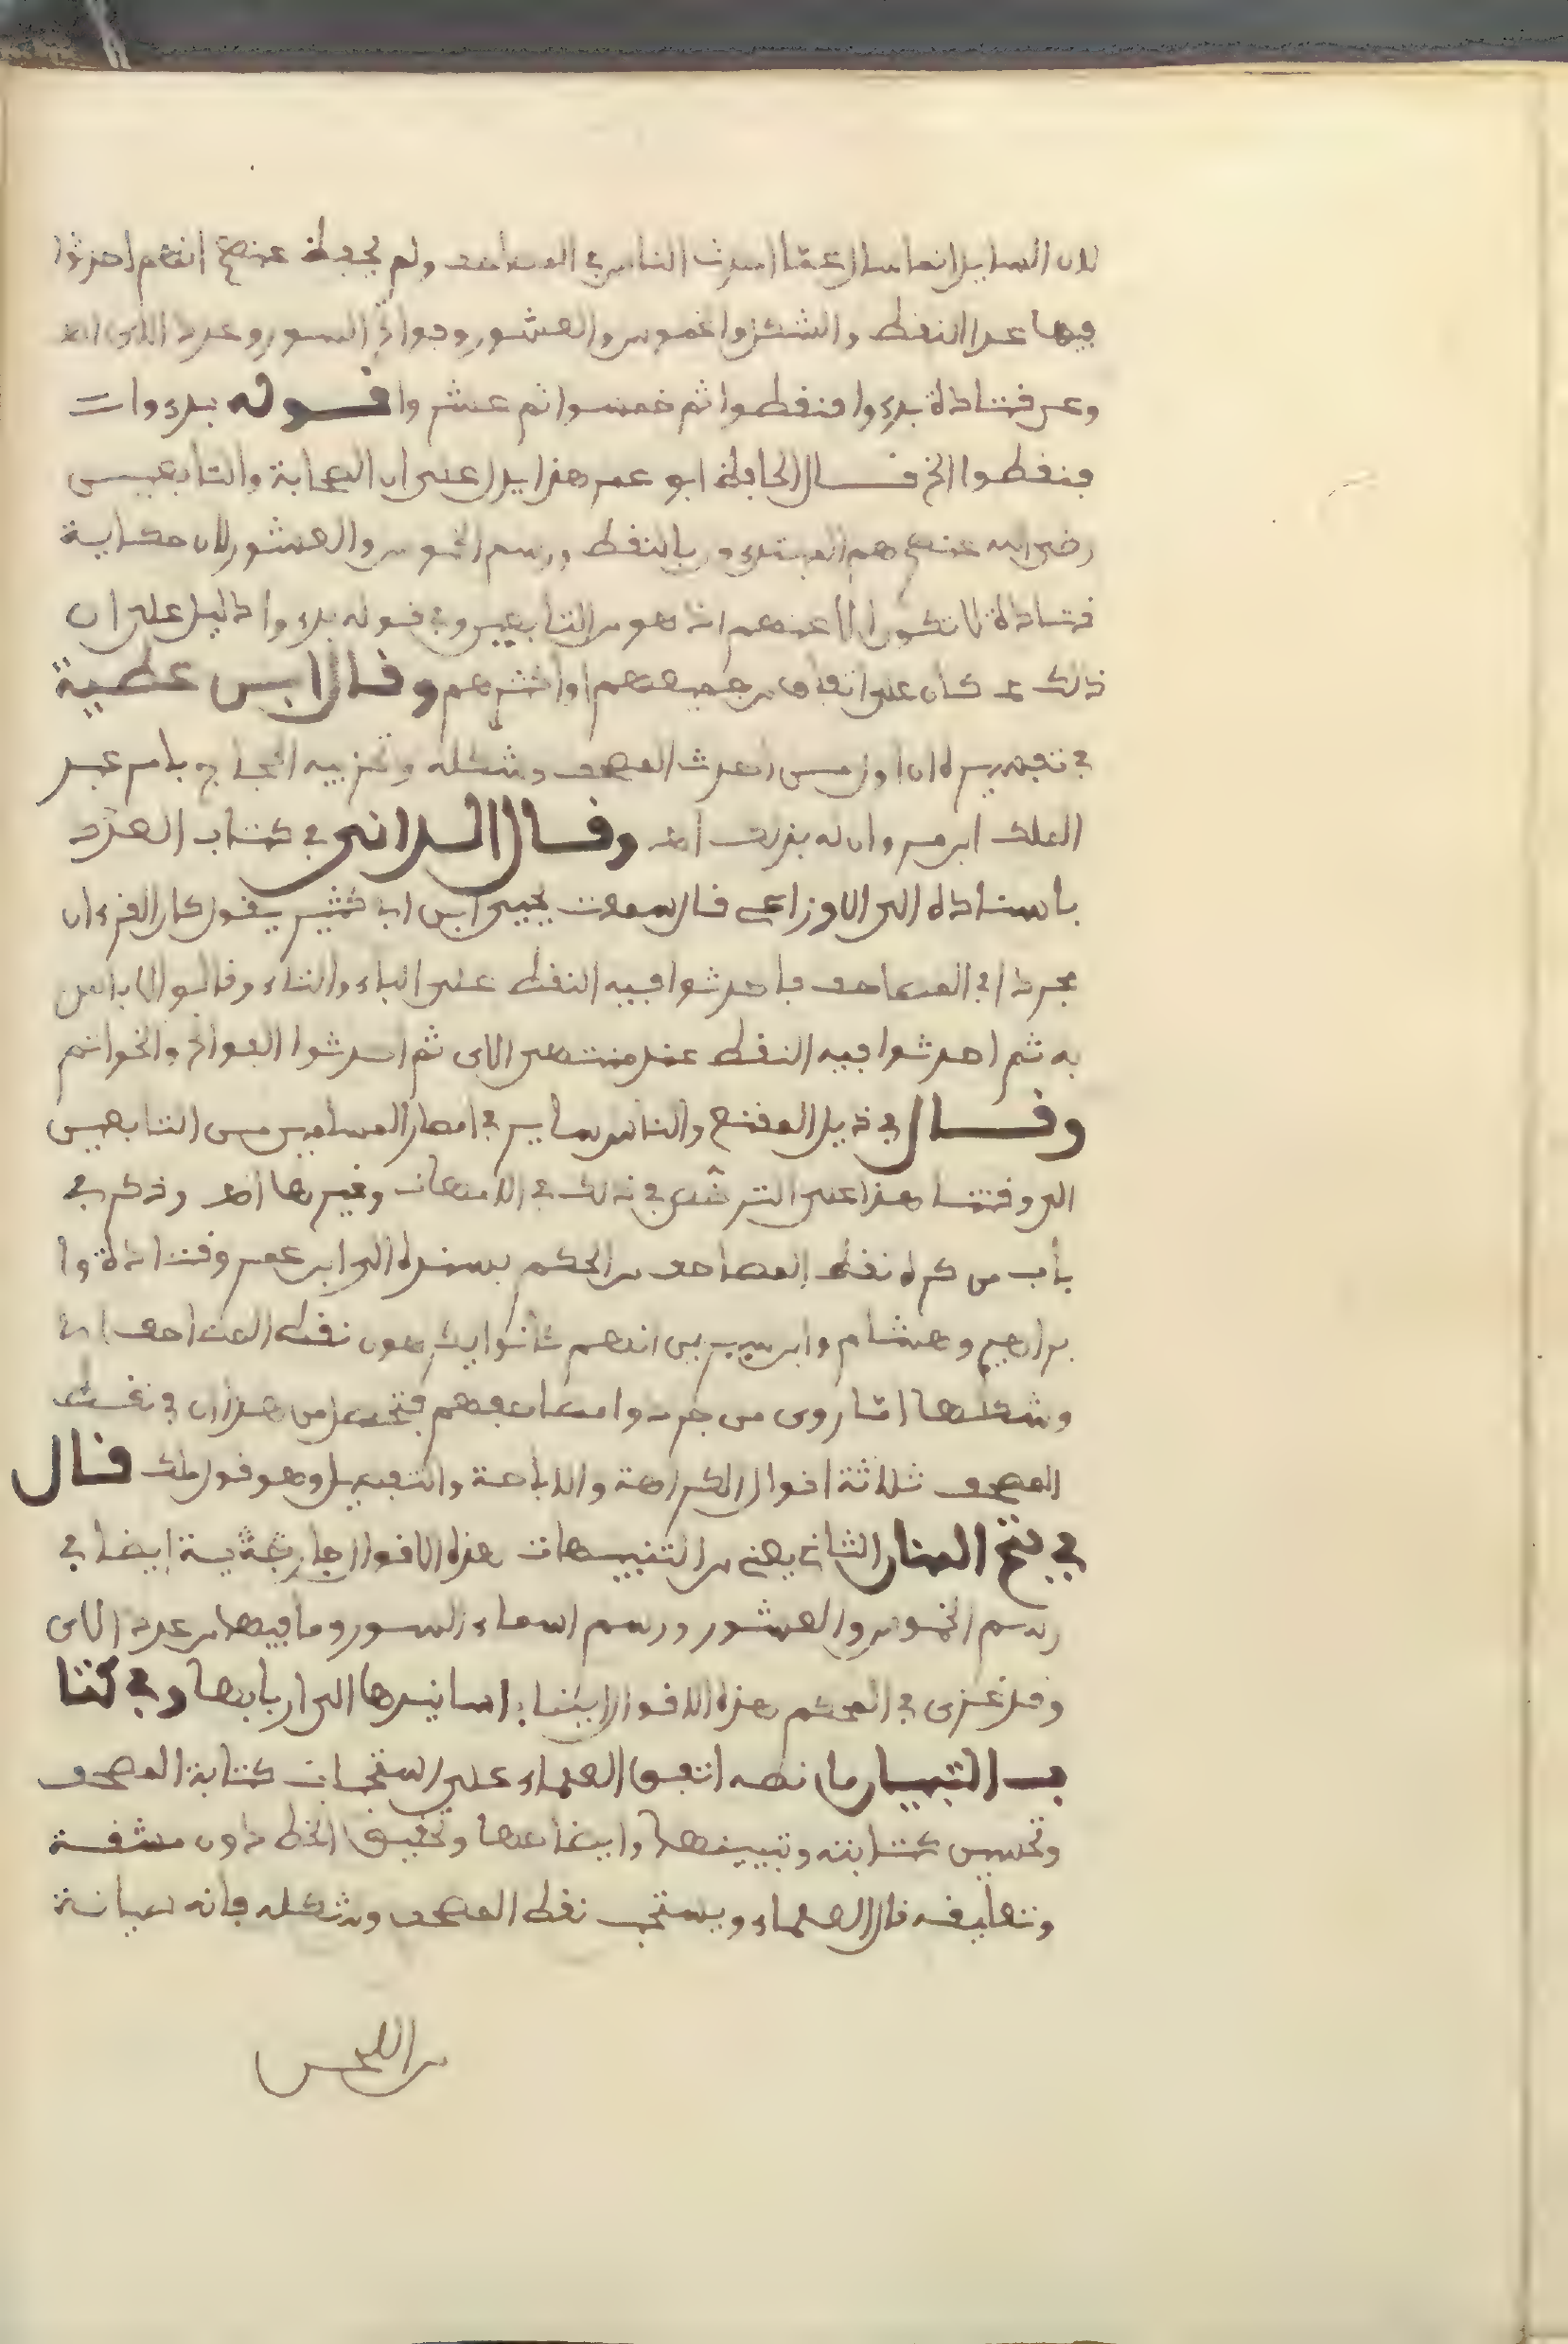 لان السايل انما سال عمّا احدث الناس في المصاحف ولم يحفظ عنهم انهم احدثوا
فيها عدا النقط والشكل واخموس والعشور وفواتح السور وعدد الاي اهـ
وعن قتادة بدءوا فنقطوا ثم خمسوا ثم عشروا قوله بدءوا
فنقطوا الخ قال الحافظ ابو عمر هذا يدل على ان الصحابة والتابعيـن
رضي الله عنهم هم المبتدءون بالنقط ورسم الخموس والعشور لان حكاية
قتادة لا تكون الا عنهم اذ هو من التابعين وفي قوله بدءوا دليل على ان
ذلك كان على اتفاق من جميعهم او اكثرهم وقال ابن عطية
في تفسيره ان اول من احدث المصحف وشكله وتحزيبه الحجاج بامر عبد
الملك ابن مروان له بذلك اهـ وقال الداني في كتاب العدد
باسناده الى الاوزاعي قال سمعت يحيى ابن ابي كثير يقول كان القرءان
مجردا في المصاحف فاحدثوا فيه النقط على الباء والتاء وقالوا لا باس
به ثم احدثوا فيه النقط عند منتهى الاي ثم احدثوا الفواتح والخواتم
وقال في ذيل المقنع والناس ساير في امصار المسلمين من التابعين
الى وقتنا هذا على الترخص في ذلك في الامهات وغيرها اهـ وذكر في
باب من كره نقط المصاحف من المحكم بسنده الى ابن عمر وقتادة وا
براهيم وهشام وابن سيرين انهم كانوا يكرهون نقط المصاحف
وشكلها روى من جردوا مصاحفهم فتحصل من هذا ان في نقط
المصحف ثلاثة اقوال الكراهة والاباحة والتفصيل وهو قول ملك قال
في فتح المنان الثاني يعني من التنبيهات هذه الاقوال جارية ايضا في
رسم الخموس والعشور ورسم اسماء السور وما فيها من عدد الاي
وقد عزى في المحكم هذه الاقوال ايضا باسانيدها الى اربابها وفي كتا
ب التبيان ما نصه اتفق العلماء على استحباب كتابة المصحف
وتحسين كتابته وتبيينها وايضاحها وتحقيق الخط دون مشقة
وتعليقه قال العلماء ويستحب نقط المصحف وشكله فانه صيانة
من اللحن